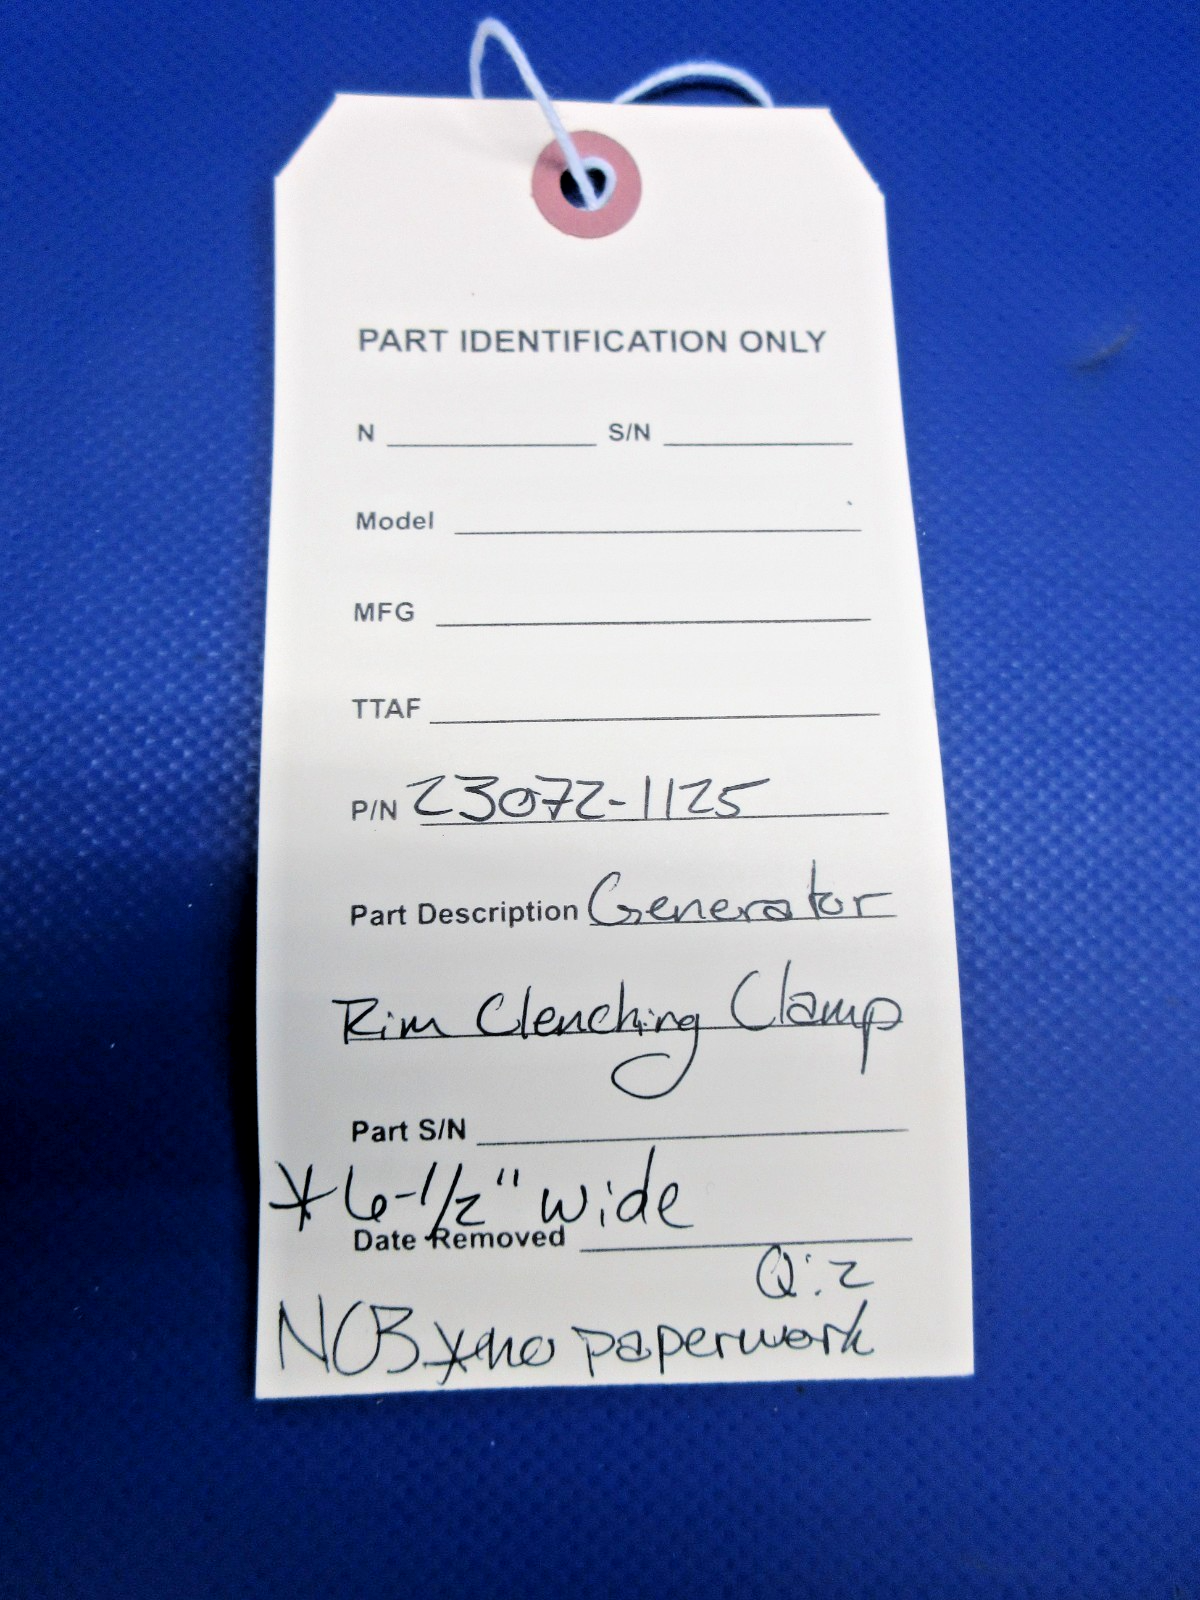 PART IDENTIFICATION ONLY
N S/N
Model
MFG
TTAF
P/N 23072-1125
Part Description Generator
Rim Clenching Clamp
Part S/N
* 6-1/2" wide
Date Removed
Q: 2
NOB * no paperwork